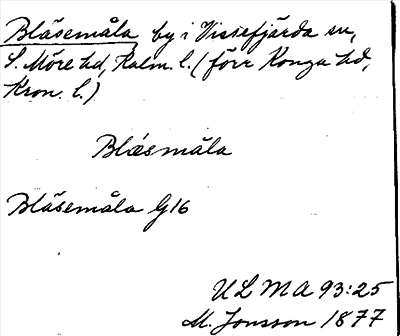 Bläsemåla by i Vissefjärda sn,
S. Möre hd, Kalm. l. (förr Konga hd,
Kron. l.)
Blǽsmåla
Bläsemåla G16
ULMA 93:25
M. Jonsson 1877